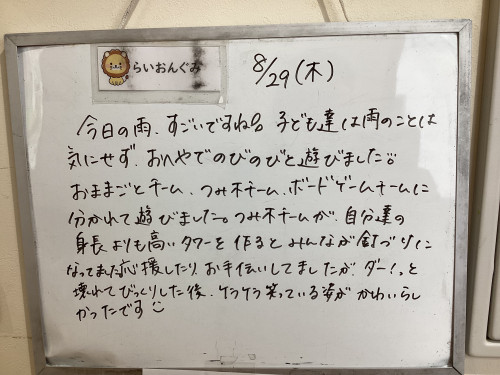 らいおんぐみ
8/29(木)
今日の雨、すごいですね。子ども達は雨のことは
気にせず、おへやでのびのびと遊びました。
おままごとチーム、つみ木チーム、ボードゲームチームに
分かれて遊びました。つみ木チームが、自分達の
身長よりも高いタワーを作るとみんなが釘づけに
なってました。応援したり、お手伝いしてましたが、ダーっと
壊れてびっくりした後、ケラケラ笑っている姿がかわいらし
かったです